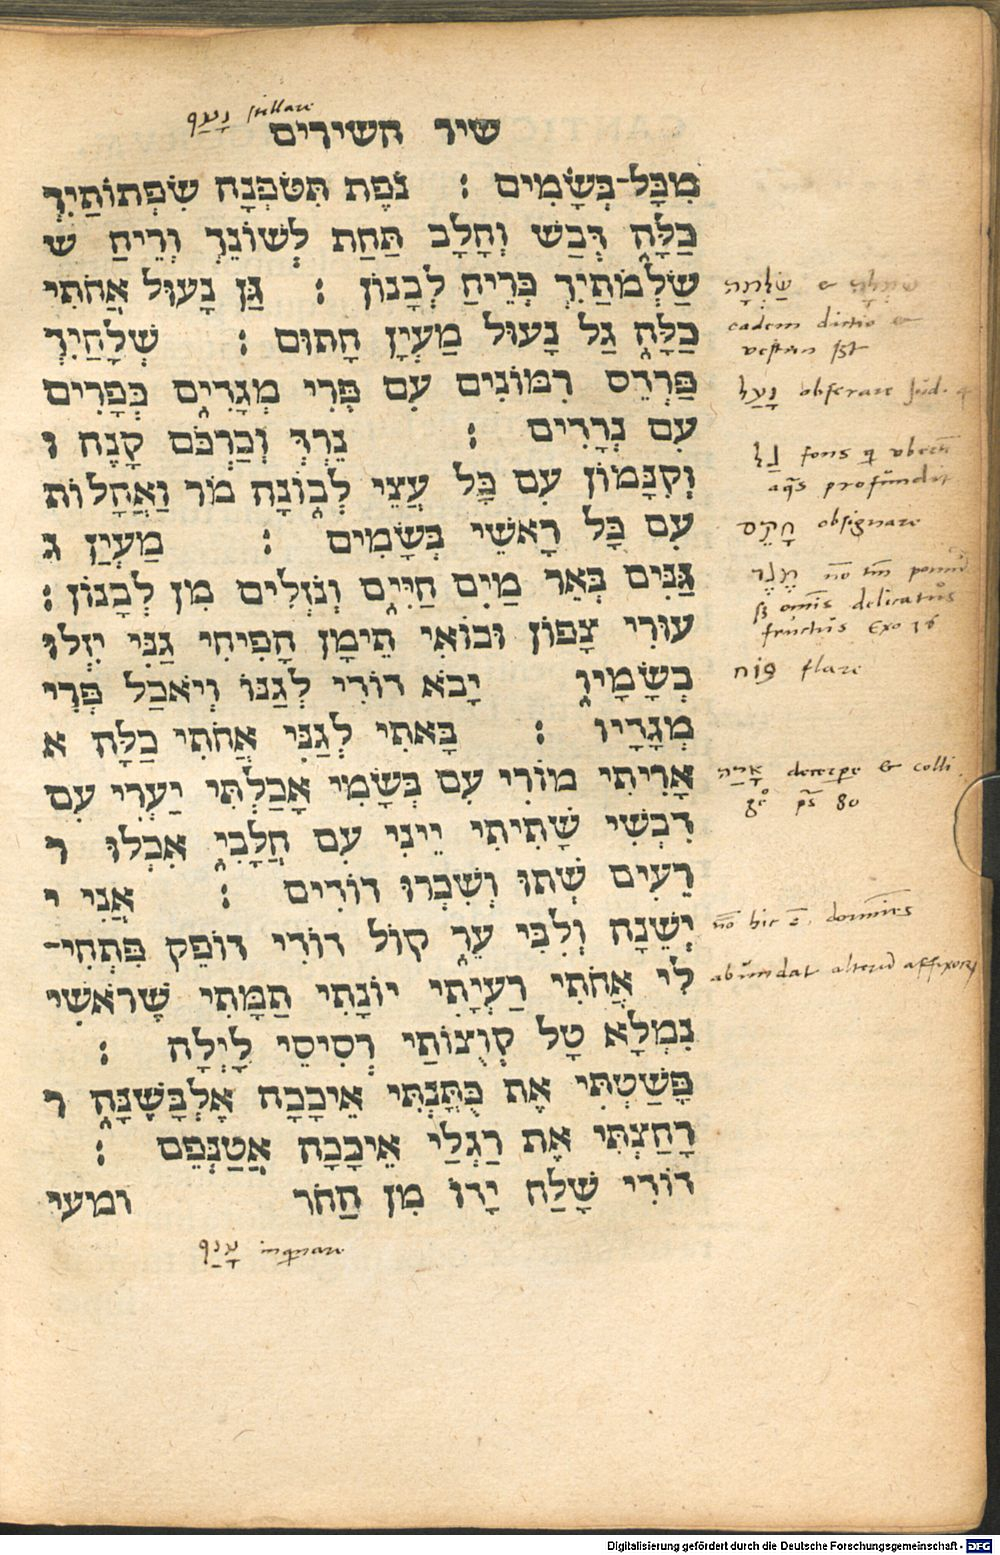 stillare
שיר השירים
מִכָּל־בְּשָׂמִים : נֹפֶת תִּטֹּפְנָה שִׂפְתוֹתַיִךְ
כַּלָּה דְּבַשׁ וְחָלָב תַּחַת לְשׁוֹנֵךְ וְרֵיחַ ש
שַׂלְמֹתַיִךְ כְּרֵיחַ לְבָנוֹן : גַּן נָעוּל אֲחֹתִי
כַלָּה גַּל נָעוּל מַעְיָן חָתוּם : שְׁלָחַיִךְ
פַּרְדֵּס רִמּוֹנִים עִם פְּרִי מְגָדִים כְּפָרִים
עִם נְרָדִים : נֵרְדְּ וְכַרְכֹּם קָנֶה ו
וְקִנָּמוֹן עִם כָּל עֲצֵי לְבוֹנָה מֹר וַאֲהָלוֹת
עִם כָּל רָאשֵׁי בְשָׂמִים : מַעְיַן ג
גַּנִּים בְּאֵר מַיִם חַיִּים וְנֹזְלִים מִן לְבָנוֹן :
עוּרִי צָפוֹן וּבוֹאִי תֵימָן הָפִיחִי גַנִּי יִזְּלוּ
בְשָׂמָיו יָבֹא דוֹדִי לְגַנּוֹ וְיֹאכַל פְּרִי
מְגָדָיו : בָּאתִי לְגַנִּי אֲחֹתִי כַלָּה א
אָרִיתִי מוֹרִי עִם בְּשָׂמִי אָכַלְתִּי יַעְרִי עִם
דִּבְשִׁי שָׁתִיתִי יֵינִי עִם חֲלָבִי אִכְלוּ ר
רֵעִים שְׁתוּ וְשִׁכְרוּ דּוֹדִים : אֲנִי י
יְשֵׁנָה וְלִבִּי עֵר קוֹל דּוֹדִי דוֹפֵק פִּתְחִי־
לִי אֲחֹתִי רַעְיָתִי יוֹנָתִי תַמָּתִי שֶׁרֹאשִׁי
נִמְלָא טָל קְוֻצּוֹתַי רְסִיסֵי לָיְלָה :
פָּשַׁטְתִּי אֶת כֻּתָּנְתִּי אֵיכָכָה אֶלְבָּשֶׁנָּה ר
רָחַצְתִּי אֶת רַגְלַי אֵיכָכָה אֲטַנְּפֵם :
דּוֹדִי שָׁלַח יָדוֹ מִן הַחֹר ומעי
שַׂלְמָה &
eadem dictio &
vestem
obserare
fons
aqs profundit
obsignare
delicatus
fructus Exo
flare
אָרָה decerpe & colli
ps 80
hic
abundat alterum
inquinare
Digitalisierung gefördert durch die Deutsche Forschungsgemeinschaft - DFG